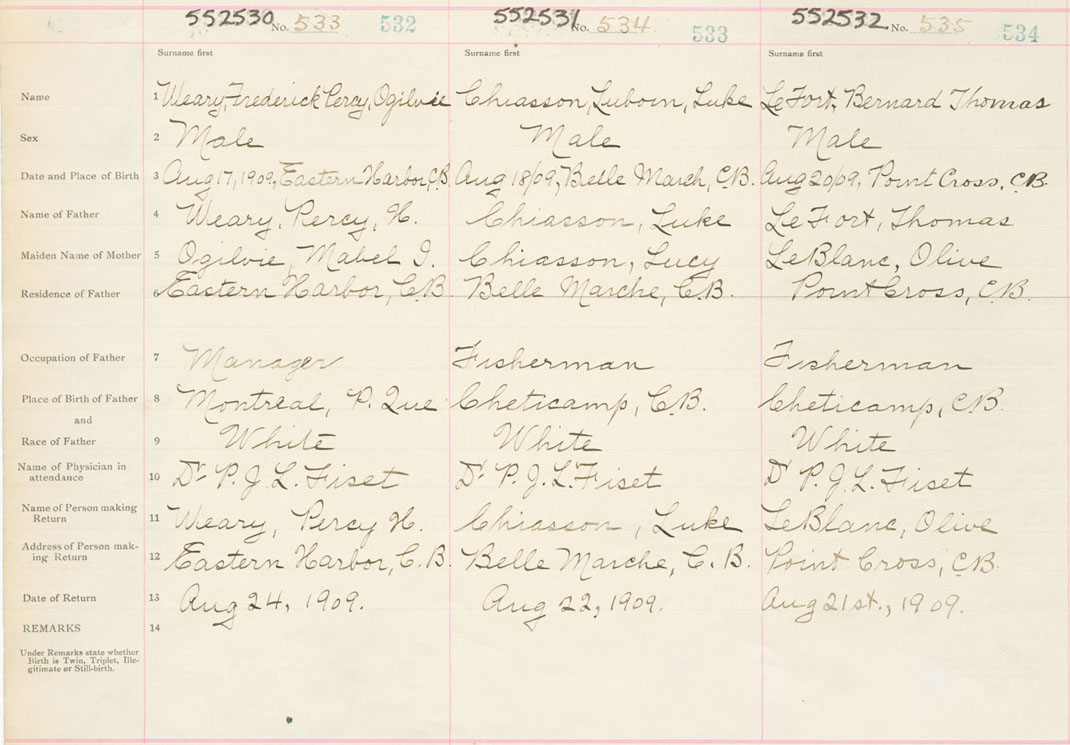 552530 No. 533 532 552531 No. 534 533 552532 No. 535 534
Surname first Surname first Surname first
Name 1 Weary, Frederick Percy, Ogilvie Chiasson, Luboin, Luke LeFort, Bernard Thomas
Sex 2 Male Male Male
Date and Place of Birth 3 Aug 17, 1909, Eastern Harbor, C.B. Aug 18/09, Belle March, C.B. Aug 20/09, Point Cross, C.B.
Name of Father 4 Weary, Percy, H. Chiasson, Luke LeFort, Thomas
Maiden Name of Mother 5 Ogilvie, Mabel I. Chiasson, Lucy LeBlanc, Olive
Residence of Father 6 Eastern Harbor, C.B Belle Marche, C.B. Point Cross, C.B.
Occupation of Father 7 Manager Fisherman Fisherman
Place of Birth of Father 8 Montreal, P. Que Cheticamp, C.B. Cheticamp, C.B.
and
Race of Father 9 White White White
Name of Physician in
attendance 10 Dr P. J. L. Fiset Dr P. J. L. Fiset Dr P. J. L. Fiset
Name of Person making
Return 11 Weary, Percy H. Chiasson, Luke LeBlanc, Olive
Address of Person mak-
ing Return 12 Eastern Harbor, C.B. Belle Marche, C.B. Point Cross, C.B.
Date of Return 13 Aug 24, 1909. Aug 22, 1909. Aug 21st., 1909.
REMARKS 14
Under Remarks state whether
Birth is Twin, Triplet, Ille-
gitimate or Still-birth.